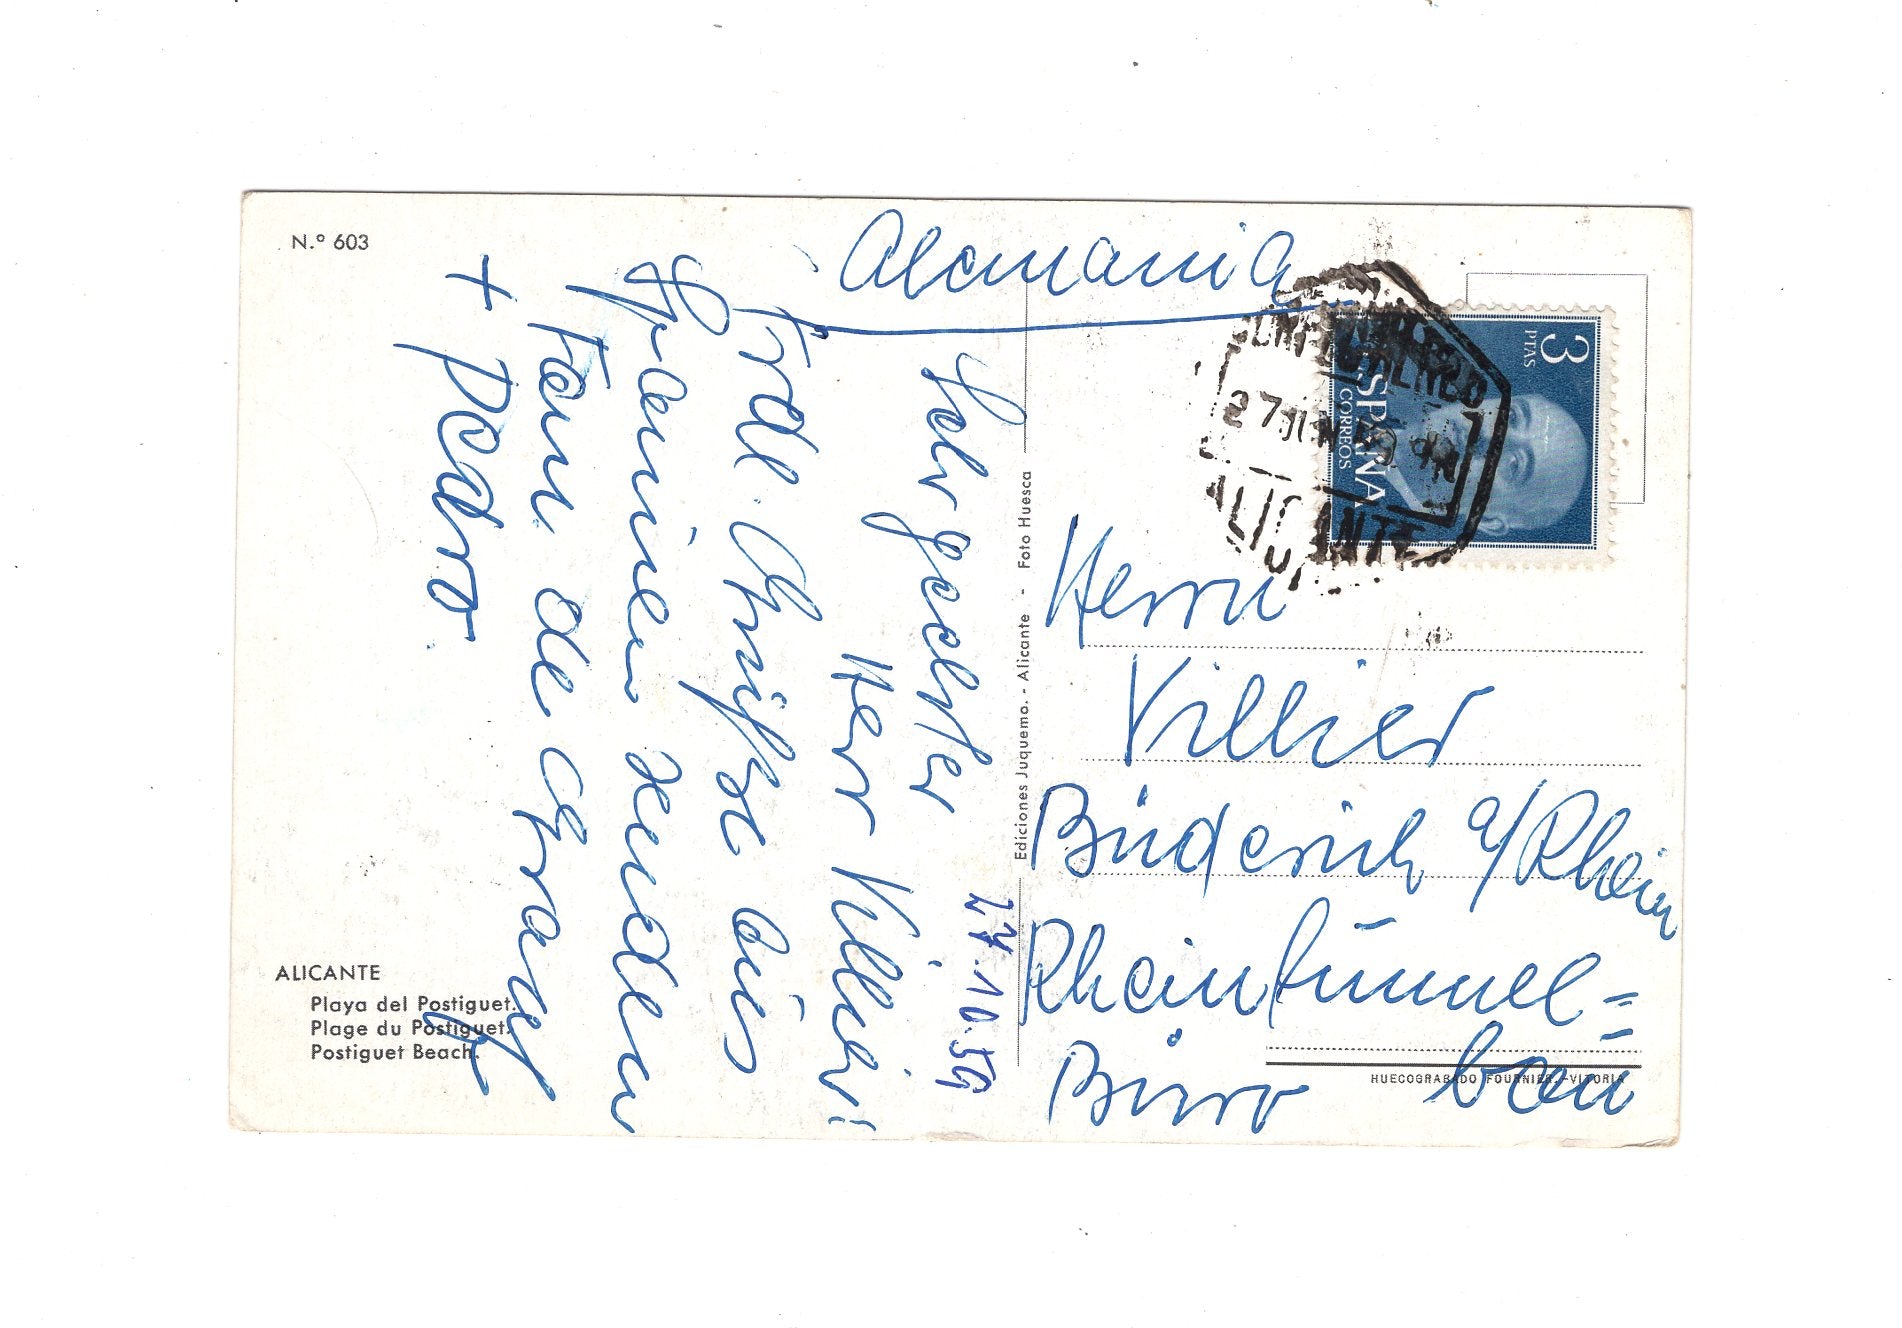 N.º 603
Alemania
3
PTAS
ESPAÑA
CORREOS
27
ALICANTE
27.10.59
Sehr geehrter
Herr Villier!
Frdl. Grüße aus
Spanien senden
Fam. de Graaf
+ Pedro
Ediciones Juquemo. - Alicante - Foto Huesca
Herrn
Villier
Büderich a/Rhein
Rheintunnel=
Büro bau
ALICANTE
Playa del Postiguet.
Plage du Postiguet.
Postiguet Beach.
HUECOGRABADO FOURNIER.-VITORIA